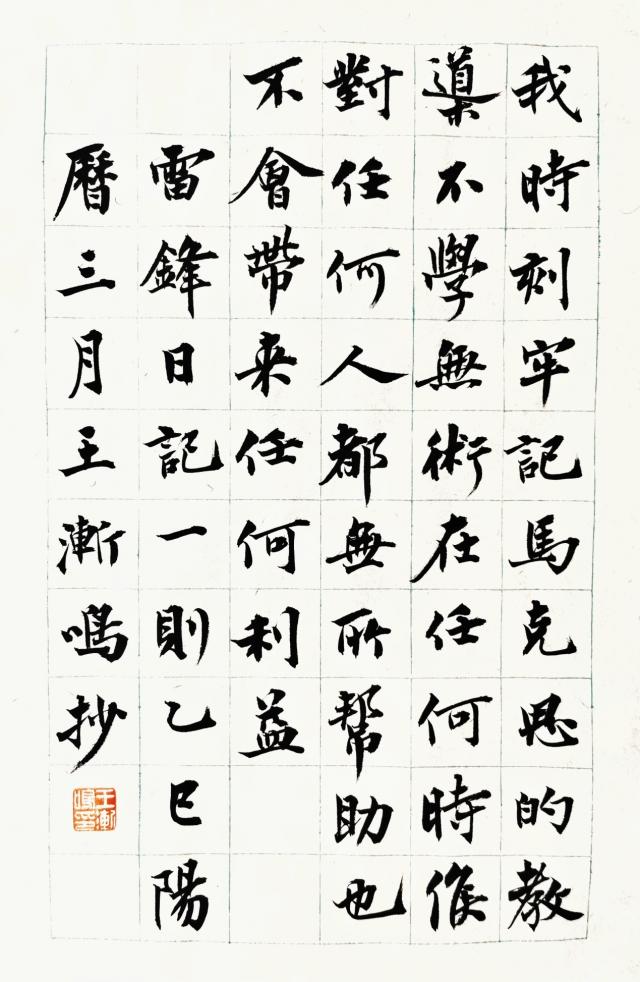 我時刻牢記馬克思的教
導不學無術在任何時候
對任何人都無所幫助也
不會帶来任何利益
雷鋒日記一則乙巳陽
曆三月王漸鳴抄
王漸鳴印